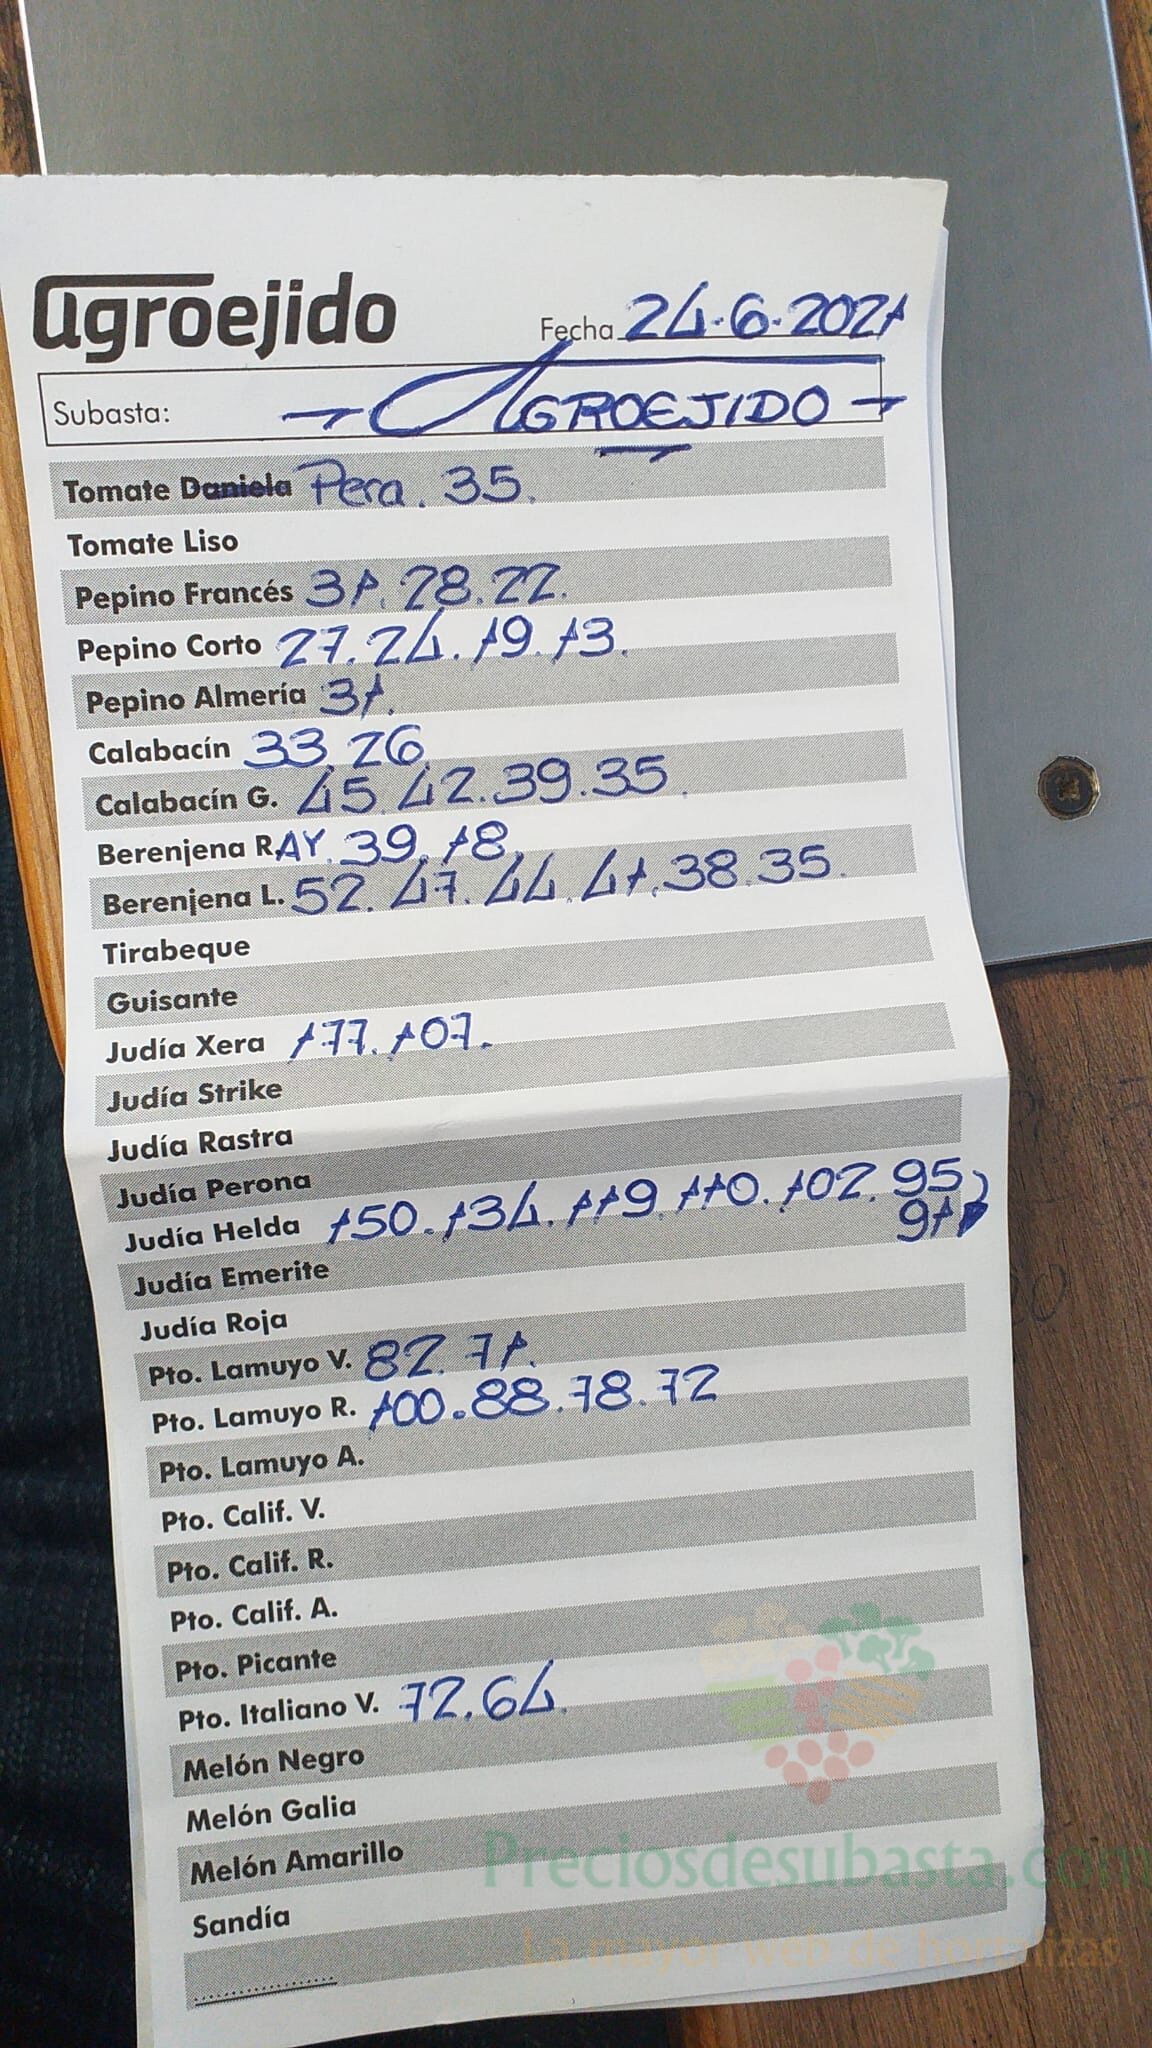 agroejido
Fecha 24.6.2021
Subasta: AGROEJIDO
Tomate Daniela Pera. 35.
Tomate Liso
Pepino Francés 31. 28. 22.
Pepino Corto 27. 24. 19. 13.
Pepino Almería 31.
Calabacín 33. 26.
Calabacín G. 45. 42. 39. 35.
Berenjena R.AY. 39. 18.
Berenjena L. 52. 47. 44. 41. 38. 35.
Tirabeque
Guisante
Judía Xera 177. 107.
Judía Strike
Judía Rastra
Judía Perona
Judía Helda 150. 134. 119. 110. 102. 95
91
Judía Emerite
Judía Roja
Pto. Lamuyo V. 82. 71.
Pto. Lamuyo R. 100. 88. 78. 72
Pto. Lamuyo A.
Pto. Calif. V.
Pto. Calif. R.
Pto. Calif. A.
Pto. Picante
Pto. Italiano V. 72. 64.
Melón Negro
Melón Galia
Melón Amarillo
Sandía
Preciosdesubasta.com
La mayor web de hortalizas